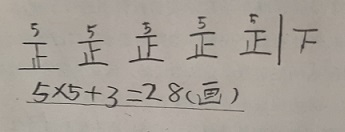 5 5 5 5 5
正 正 正 正 正 | 下
5×5+3=28(画)